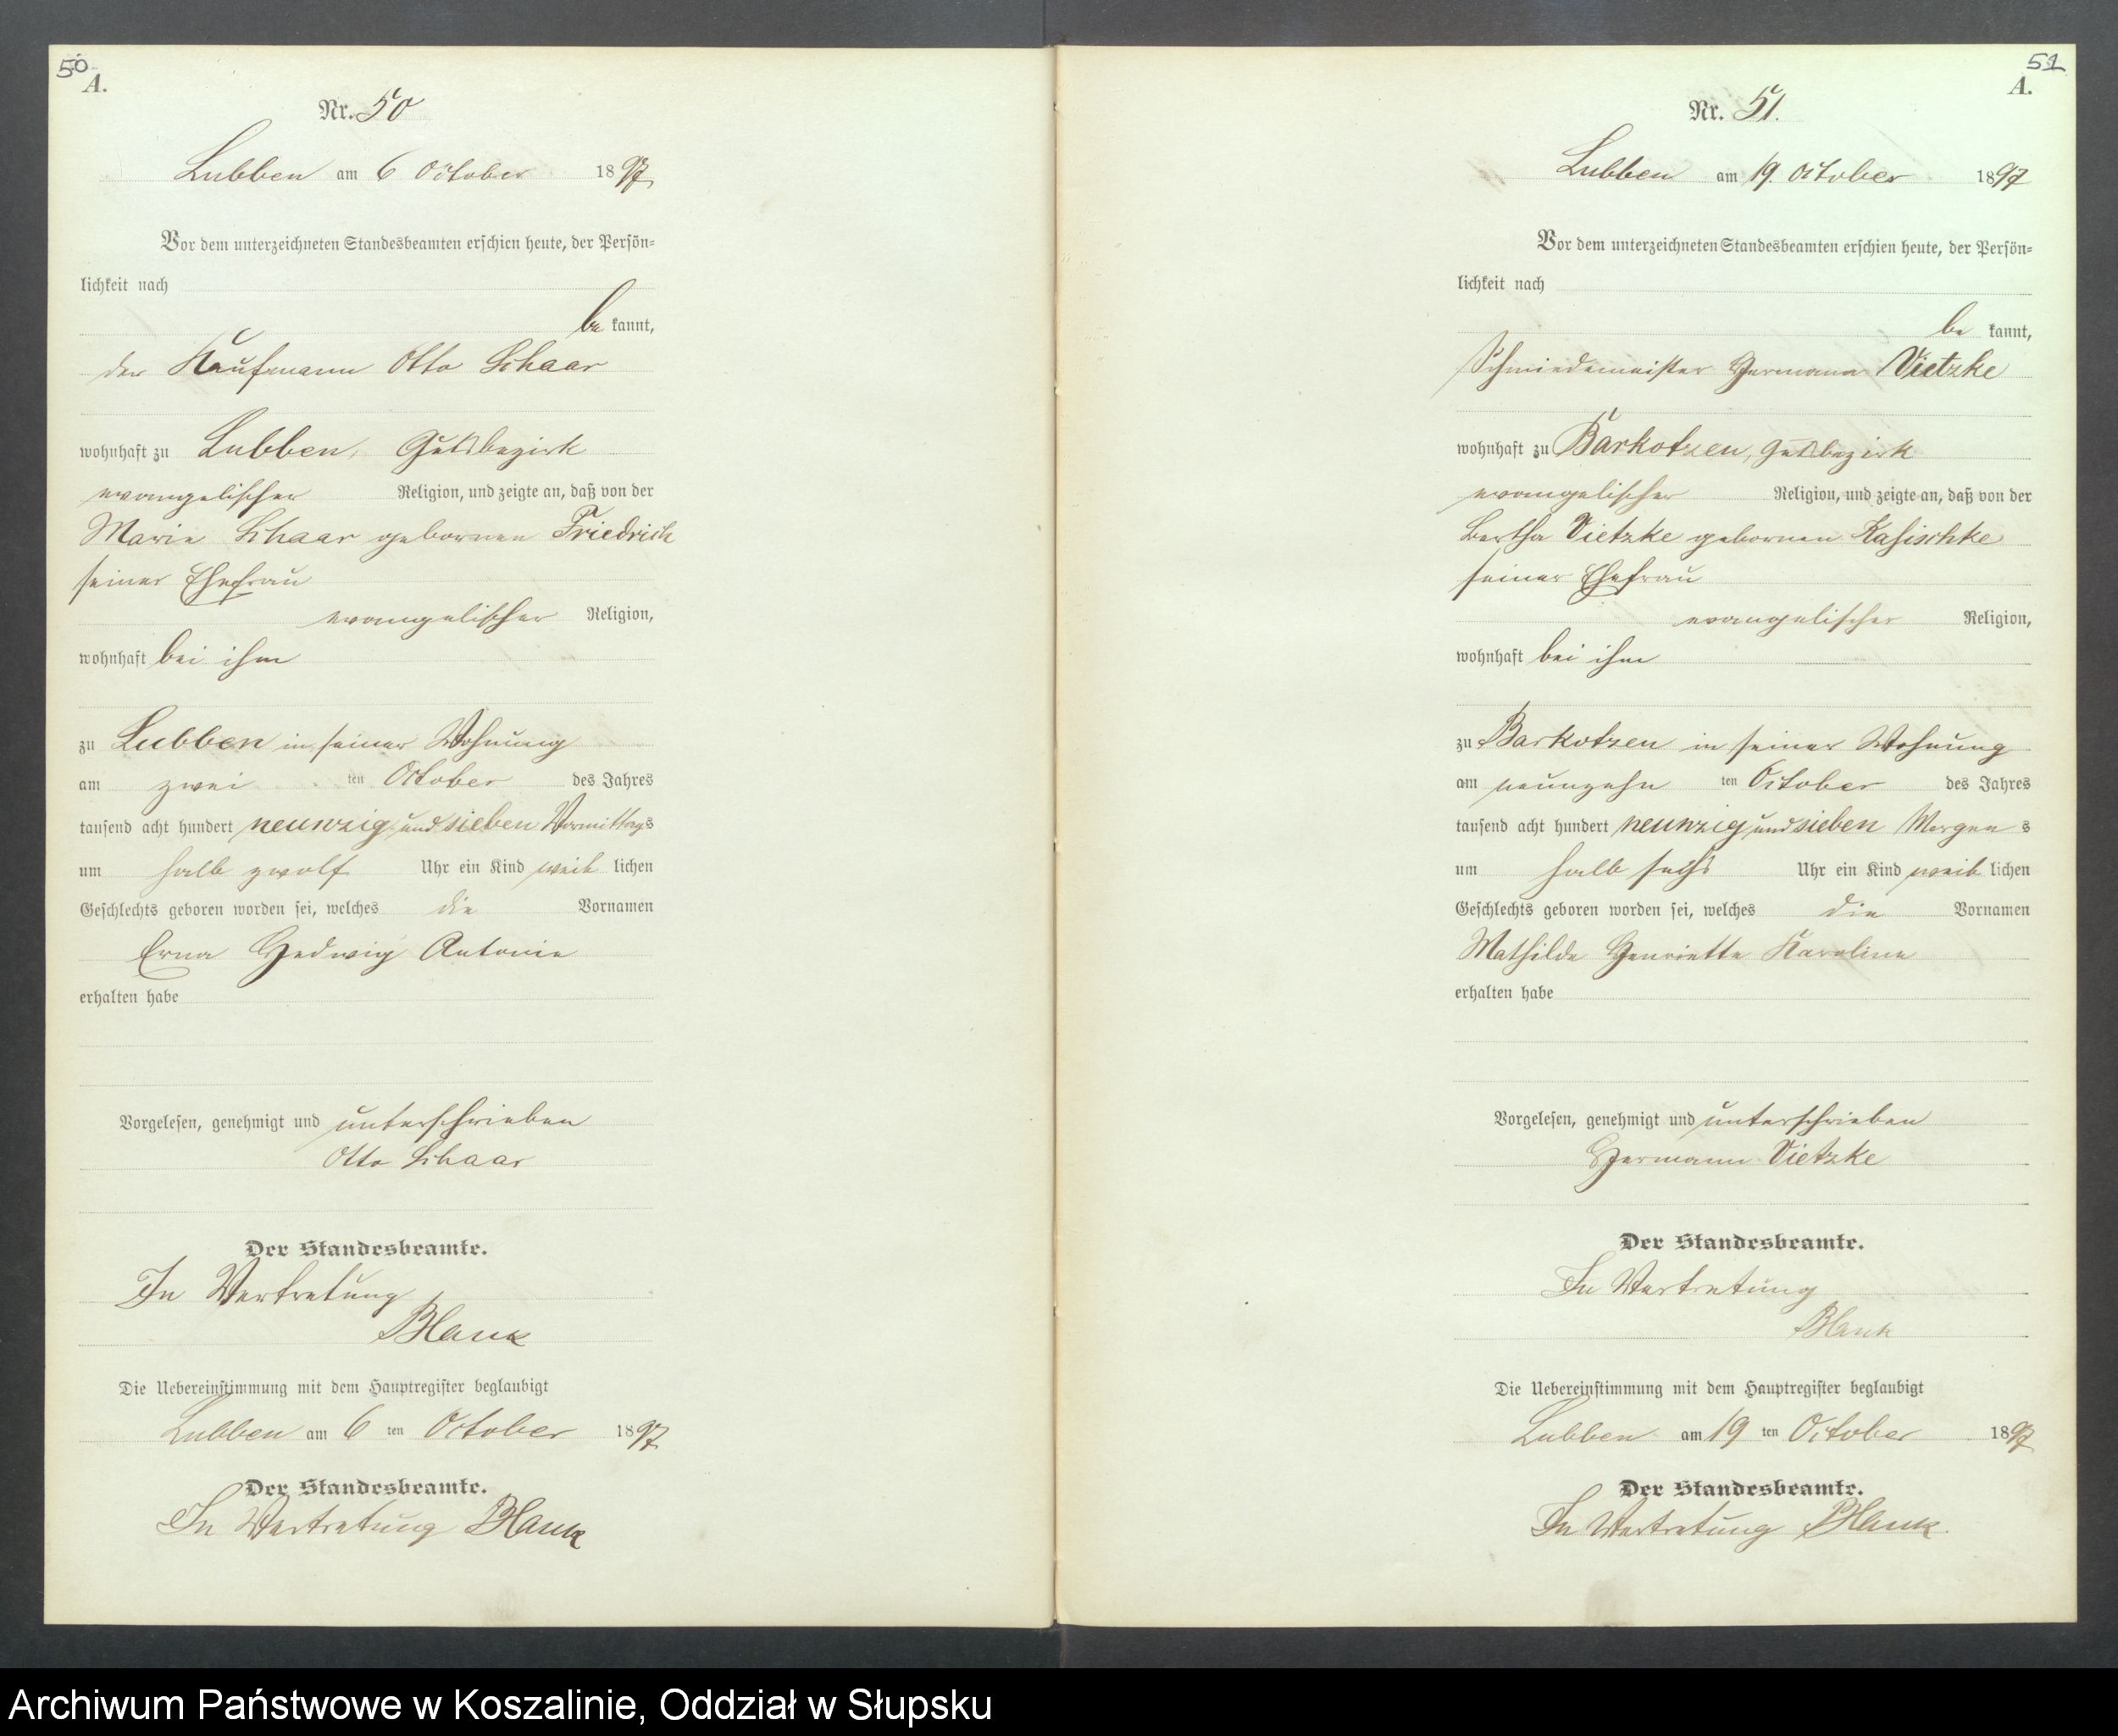 50
A.
Nr. 50
Lubben am 6 October 1897
Vor dem unterzeichneten Standesbeamten erschien heute, der Persön=
lichkeit nach
be kannt,
der Kaufmann Otto Schaar
wohnhaft zu Lubben, Gutsbezirk
evangelischer Religion, und zeigte an, daß von der
Marie Schaar gebornen Friedrich
seiner Ehefrau
evangelischer Religion,
wohnhaft bei ihm
zu Lubben in seiner Wohnung
am zwei ten October des Jahres
tausend acht hundert neunzig und sieben Vormittags
um halb zwölf Uhr ein Kind weib lichen
Geschlechts geboren worden sei, welches die Vornamen
Erna Hedwig Antonie
erhalten habe
Vorgelesen, genehmigt und unterschrieben
Otto Schaar
Der Standesbeamte.
In Vertretung
Blank
Die Uebereinstimmung mit dem Hauptregister beglaubigt
Lubben am 6 ten October 1897
Der Standesbeamte.
In Vertretung Blank
51
A.
Nr. 51.
Lubben am 19. October 1897
Vor dem unterzeichneten Standesbeamten erschien heute, der Persön=
lichkeit nach
be kannt,
Schmiedemeister Hermann Vietzke
wohnhaft zu Barkotzen, Gutsbezirk
evangelischer Religion, und zeigte an, daß von der
Bertha Vietzke gebornen Kasischke
seiner Ehefrau
evangelischer Religion,
wohnhaft bei ihm
zu Barkotzen in seiner Wohnung
am neunzehn ten October des Jahres
tausend acht hundert neunzig und sieben Morgen s
um halb sechs Uhr ein Kind weib lichen
Geschlechts geboren worden sei, welches die Vornamen
Mathilde Henriette Karoline
erhalten habe
Vorgelesen, genehmigt und unterschrieben
Hermann Vietzke
Der Standesbeamte.
In Vertretung
Blank
Die Uebereinstimmung mit dem Hauptregister beglaubigt
Lubben am 19 ten October 1897
Der Standesbeamte.
In Vertretung Blank.
Archiwum Państwowe w Koszalinie, Oddział w Słupsku